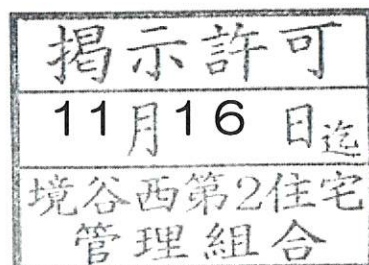 掲示許可
11月16日迄
境谷西第2住宅
管理組合